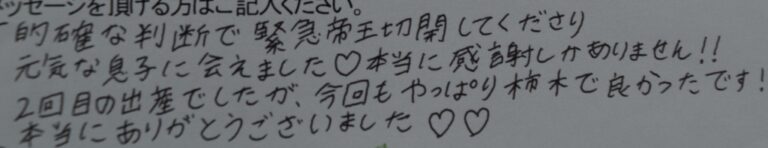 ッセージを頂ける方はご記入ください。
「的確な判断で緊急帝王切開してくださり
元気な息子に会えました♡本当に感謝しかありません!!
2回目の出産でしたが、今回もやっぱり柿木で良かったです!
本当にありがとうございました♡♡